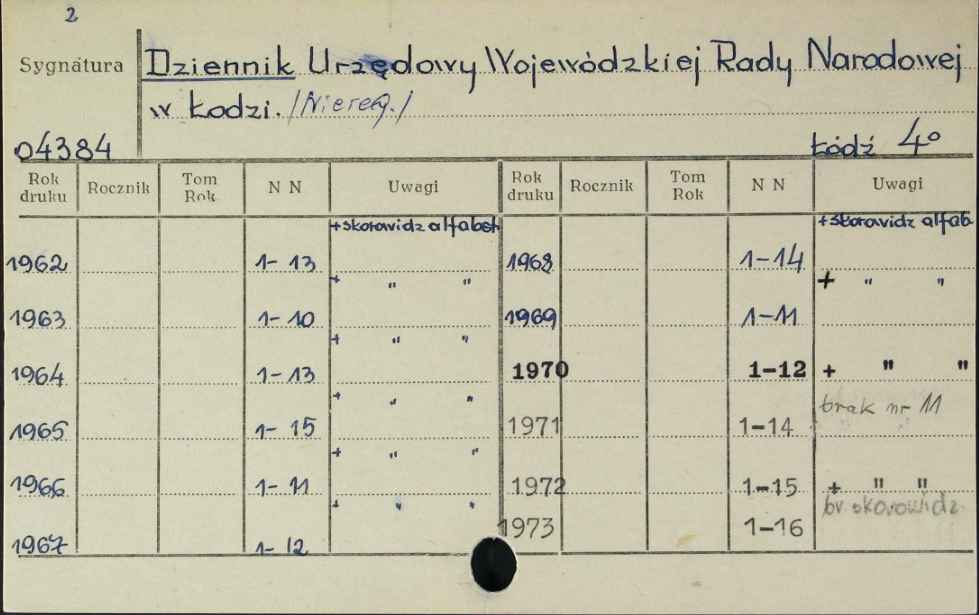 2
Sygnatura Dziennik Urzędowy Wojewódzkiej Rady Narodowej
w Łodzi. /Niereg./
04384 Łódź 4°
Rok druku Rocznik Tom Rok N N Uwagi Rok druku Rocznik Tom Rok N N Uwagi
+skorowidz alfabet +skorowidz alfab
1962 1-13 1968 1-14
+ " " + " "
1963 1-10 1969 1-11
+ " "
1964 1-13 1970 1-12 + " "
+ " " brak nr 11
1965 1-15 1971 1-14
+ " "
1966 1-11 1972 1-15 + " "
+ " " br. skorowidz
1973 1-16
1967 1-12